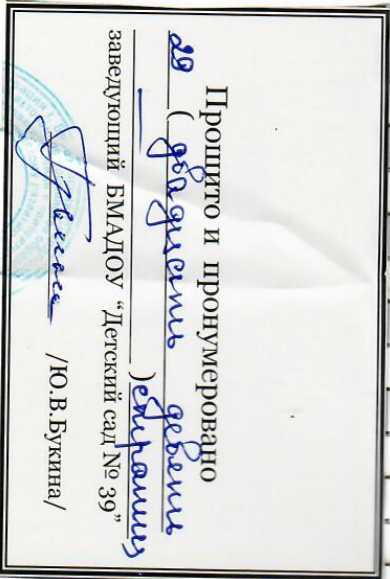 Прошито и пронумеровано
29 ( двадцать девять
) страниц
заведующий БМАДОУ "Детский сад № 39"
/Ю.В.Букина/